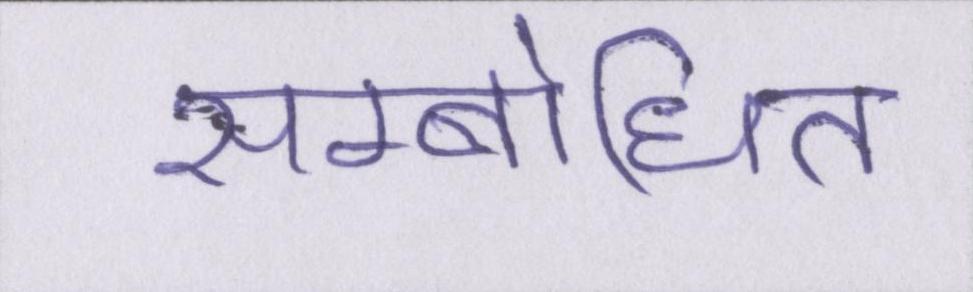 सम्बोधित